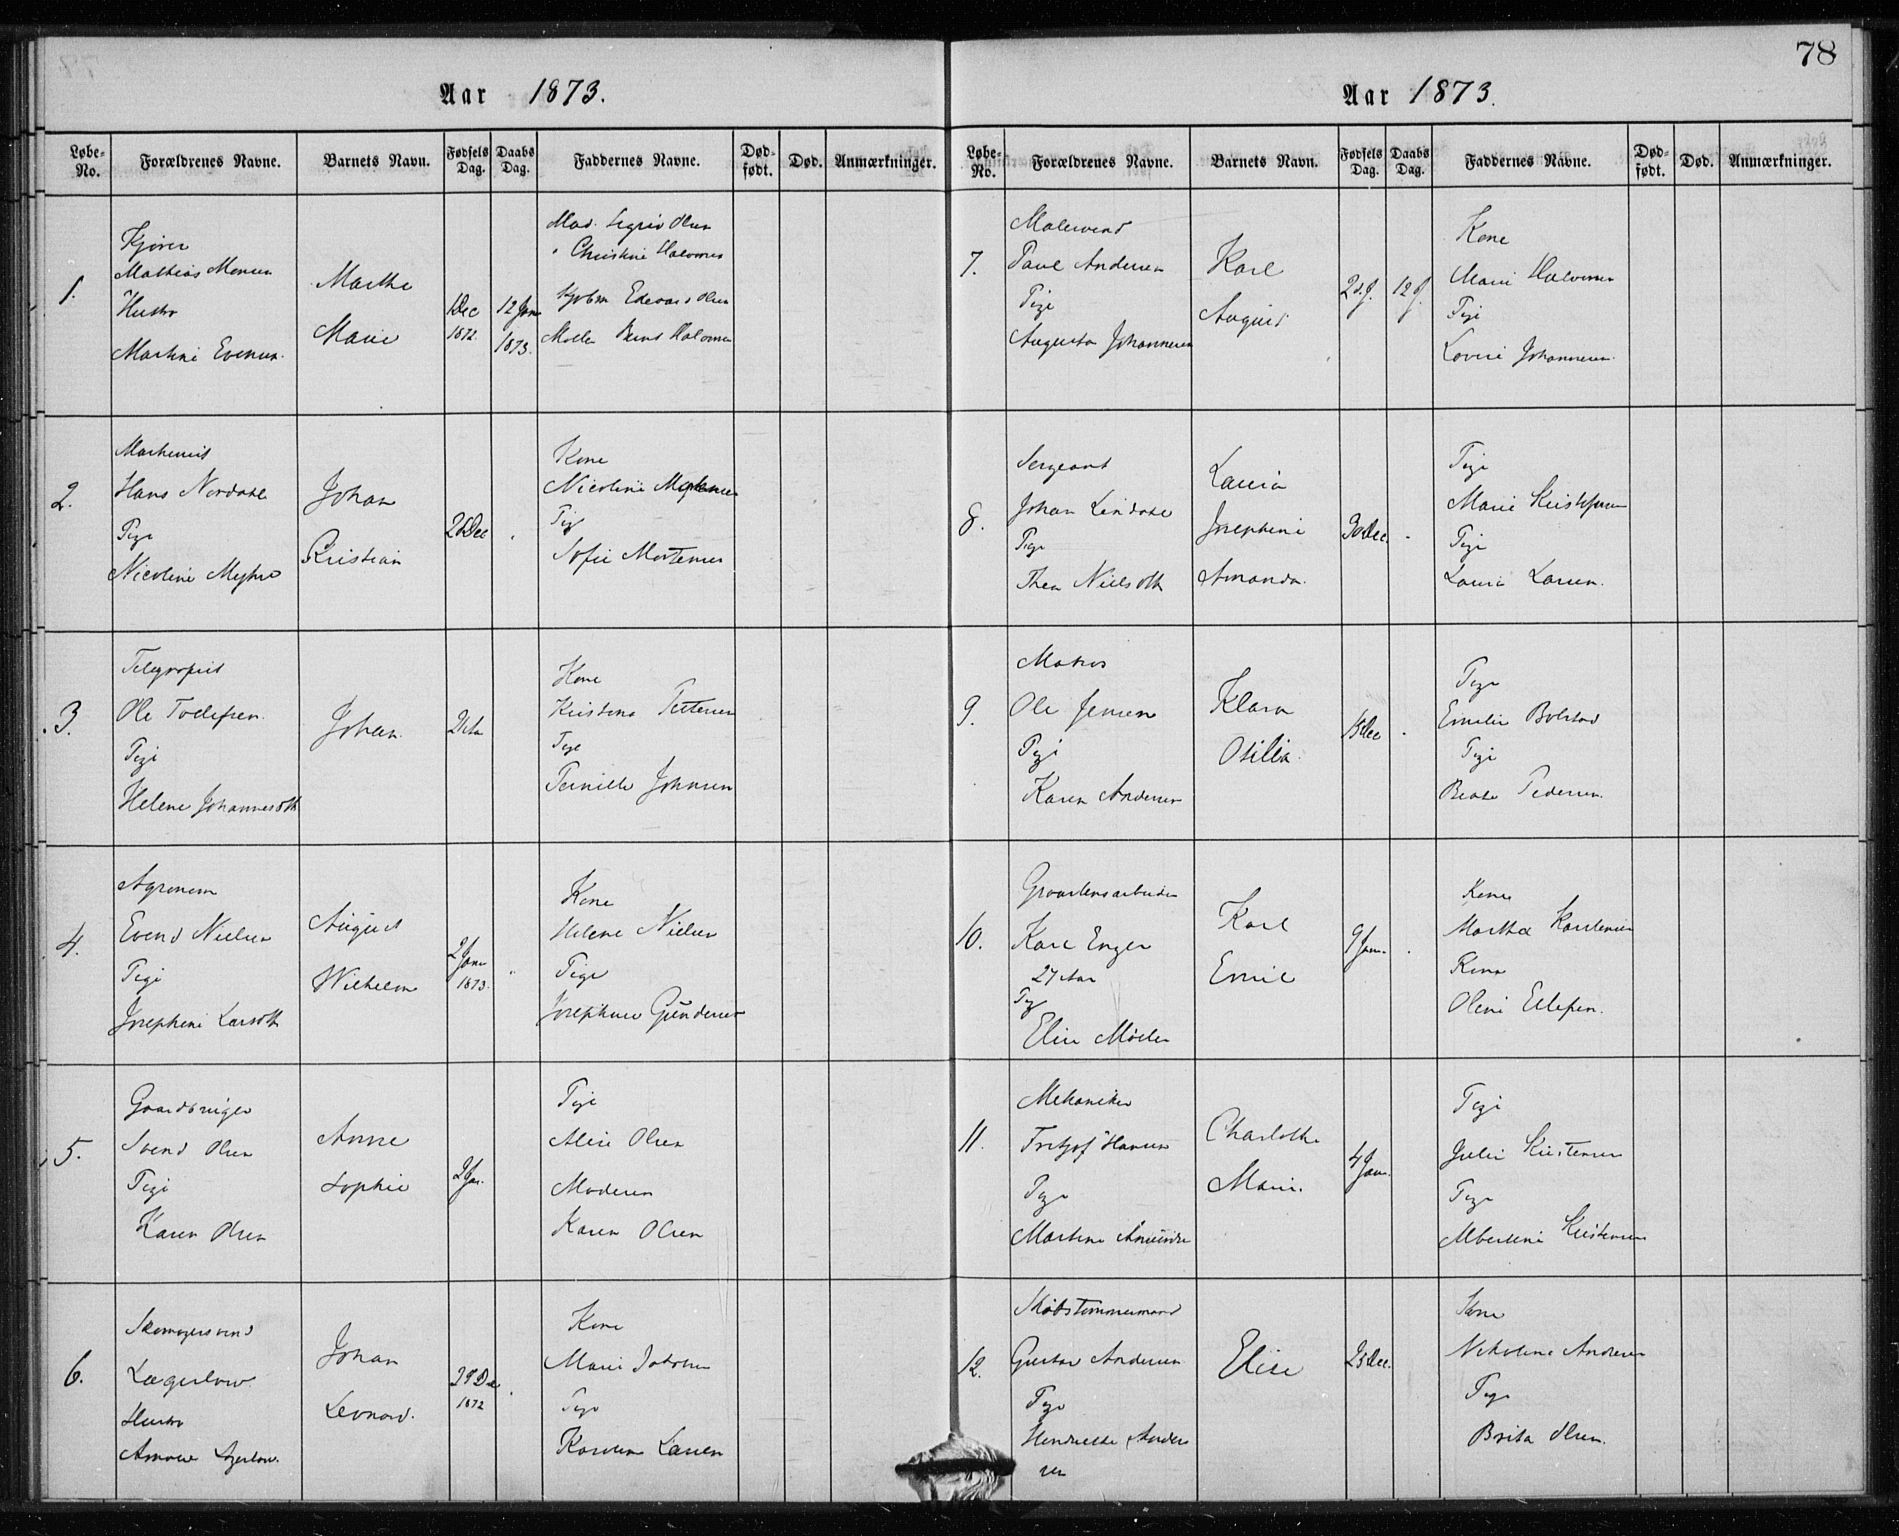 78
Aar 1873.
Løbe-No. Forældrenes Navne. Barnets Navn. Fødsels Dag. Daabs Dag. Faddernes Navne. Død-født. Død. Anmærkninger.
1.
Kjører
Mathias Monsen
Hustro
Martine Evensen
Marthe
Marie
1 Dec
1872.
12 Jan
1873.
Mad. Sigrid Olsen
" Christine Halvorsen
Edevard Olsen
Halvorsen
2.
Maskinist
Hans Nordahl
Pige
Nicoline Myhre
Johan
Kristian
26 Dec
Kone
Nicoline
Pige
Sofie Mortensen
3.
Telegrafist
Ole Tollefsen
Pige
Helene Johannesdth
Johan
Kone
Kristine Pettersen
Pige
Pernille Johnsen
4.
Agronom
Evend Nielsen
Pige
Josephine Larsdth
August
Wilhelm
2 Jan
1873.
Kone
Helene Nielsen
Pige
Josephine Gundersen
5.
Gaardbruger
Svend Olsen
Pige
Karen Olsen
Anne
Sophie
2 Jan.
Pige
Aline Olsen
Moderen
Karen Olsen
6.
Skomagersvend
Lagerlow
Hustro
Lagerlow.
Johan
Leonard.
29 De
1872
Kone
Marie
Pige
Karoline Larsen
Aar 1873.
Løbe-No. Forældrenes Navne. Barnets Navn. Fødsels Dag. Daabs Dag. Faddernes Navne. Død-født. Død. Anmærkninger.
7.
Malersvend
Paul Andersen
Pige
Augusta Johannesen
Karl
August
2 d. J.
12 J.
Kone
Marie Halvorsen
Pige
Lovise Johannesen.
8.
Sergeant
Johan Lindahl
Pige
Thea Nielsdth
Laura
Josephine
Amanda.
30 Dec.
Pige
Marie Kristofersen
Pige
Laura Larsen.
9.
Matros
Ole Jensen
Pige
Karen Andersen
Klara
Otilia.
15 Dec
Pige
Emilie Bolstad
Pige
Beate Pedersen.
10.
Graastensarbeider
Karl Enger
27 Aar
Pige
Elise Møller
Karl
Emil
9 Jan.
Kone
Martha Karlsen
Kone
Oline Ellefsen.
11.
Mekaniker
Fritjof Hansen
Pige
Martine Amundsen
Charlotte
Marie.
4 Jan.
Pige
Julie Kristensen
Pige
Albertine Kristensen
12.
Skibstømmermand
Gustav Andersen
Pige
Henriette Anders
sen
Elise
25 Dec.
Kone
Nikoline Andersen
Pige
Brita Olsen.